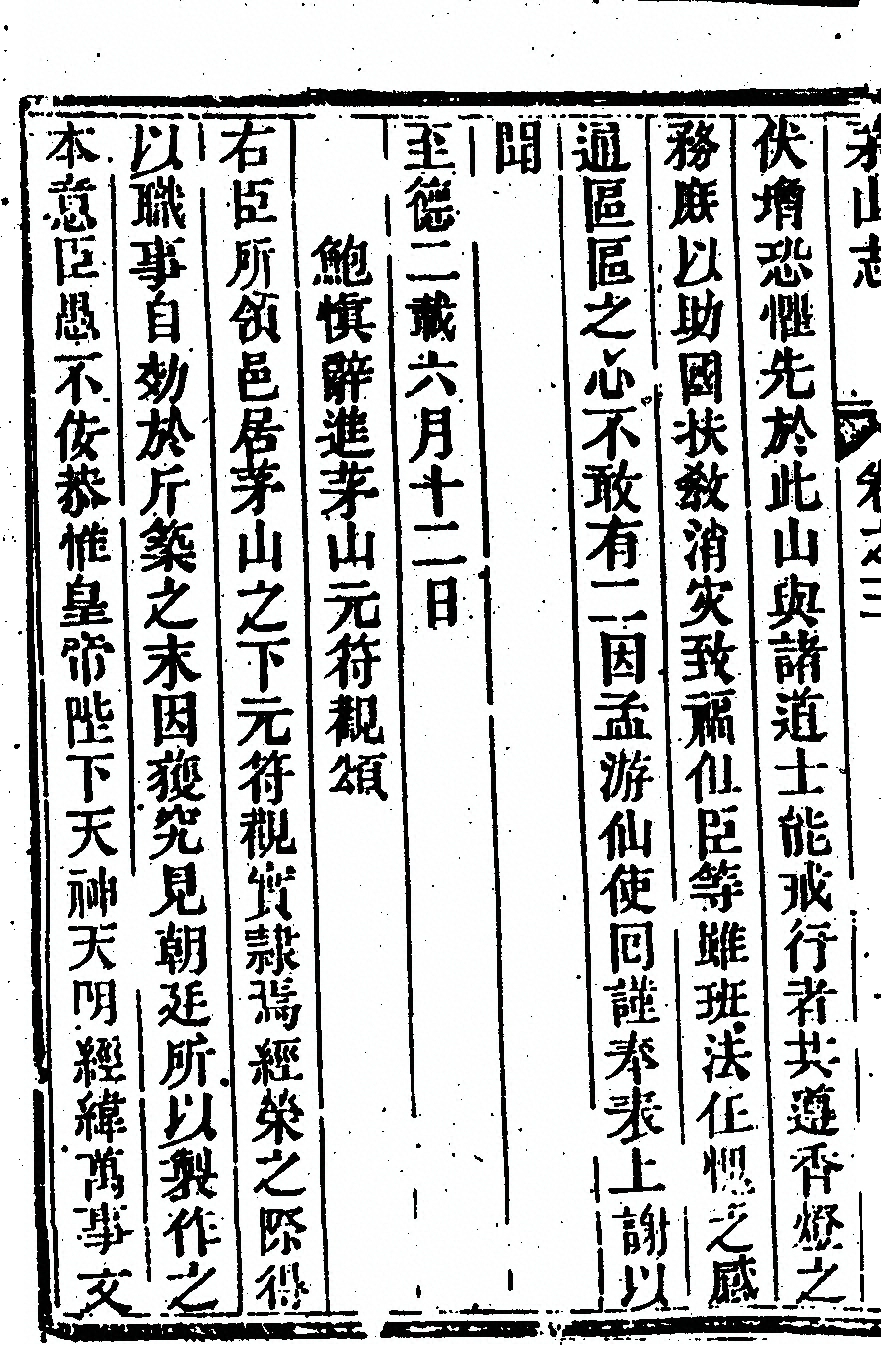 茅山志 卷之三
伏增恐懼先於此山與諸道士能戒行者共遵香燈之
務庶以助國扶教消灾致福但臣等雖班法任愧之感
通區區之心不敢有二因孟游仙使囘謹奉表上謝以
聞
至德二載六月十二日
鮑慎辭進茅山元符觀頌
右臣所領邑居茅山之下元符觀實隷焉經榮之際得
以職事自効於斤築之末因獲究見朝廷所以製作之
本意臣愚不佞恭惟皇帝陛下天神天明經緯萬事文